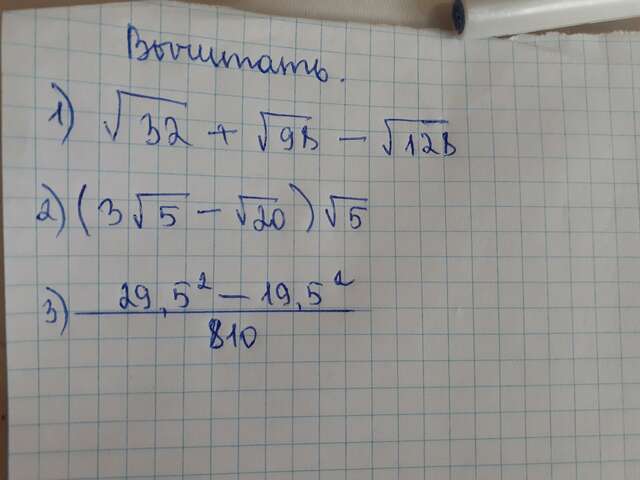 Вычитать.
1) √32 + √98 − √128
2) (3√5 − √20)√5
3) 29,5² − 19,5²
810